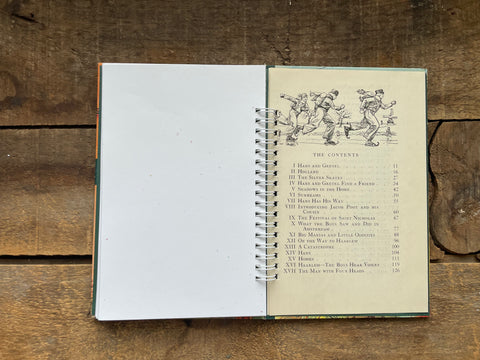 THE CONTENTS
I HANS AND GRETEL 11
II HOLLAND 16
III THE SILVER SKATES 27
IV HANS AND GRETEL FIND A FRIEND 34
V SHADOWS IN THE HOME 42
VI SUNBEAMS 50
VII HANS HAS HIS WAY 55
VIII INTRODUCING JACOB POOT AND HIS
COUSIN 60
IX THE FESTIVAL OF SAINT NICHOLAS 67
X WHAT THE BOYS SAW AND DID IN
AMSTERDAM 77
XI BIG MANIAS AND LITTLE ODDITIES 88
XII ON THE WAY TO HAARLEM 98
XIII A CATASTROPHE 100
XIV HANS 104
XV HOMES 111
XVI HAARLEM—THE BOYS HEAR VOICES 119
XVII THE MAN WITH FOUR HEADS 126